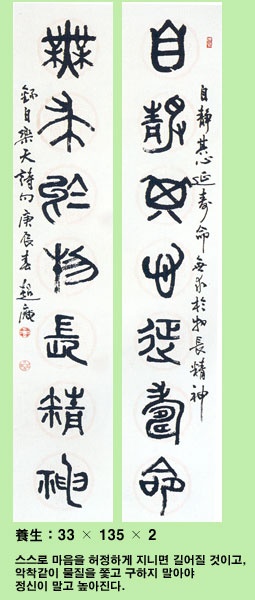 自靜其心延壽命
自靜其心延壽命無求於物長精神
無求於物長精神
錄白樂天詩句庚辰春超庵
養生 : 33 × 135 × 2
스스로 마음을 허정하게 지니면 길어질 것이고,
악착같이 물질을 쫓고 구하지 말아야
정신이 말고 높아진다.